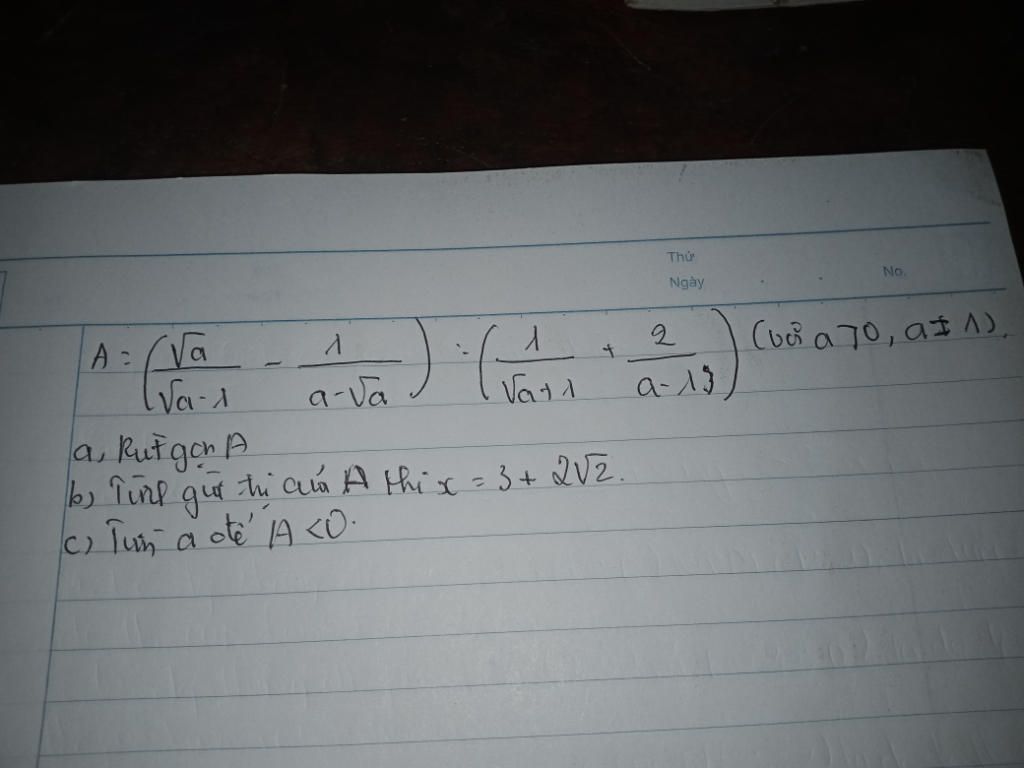 Thứ
Ngày . . No.
A = (√a/(√a-1) - 1/(a-√a)) : (1/(√a+1) + 2/(a-1)) (với a>0, a≠1).
a, Rút gọn A
b) Tính giá trị của A khi x = 3 + 2√2.
c) Tìm a để A <0.